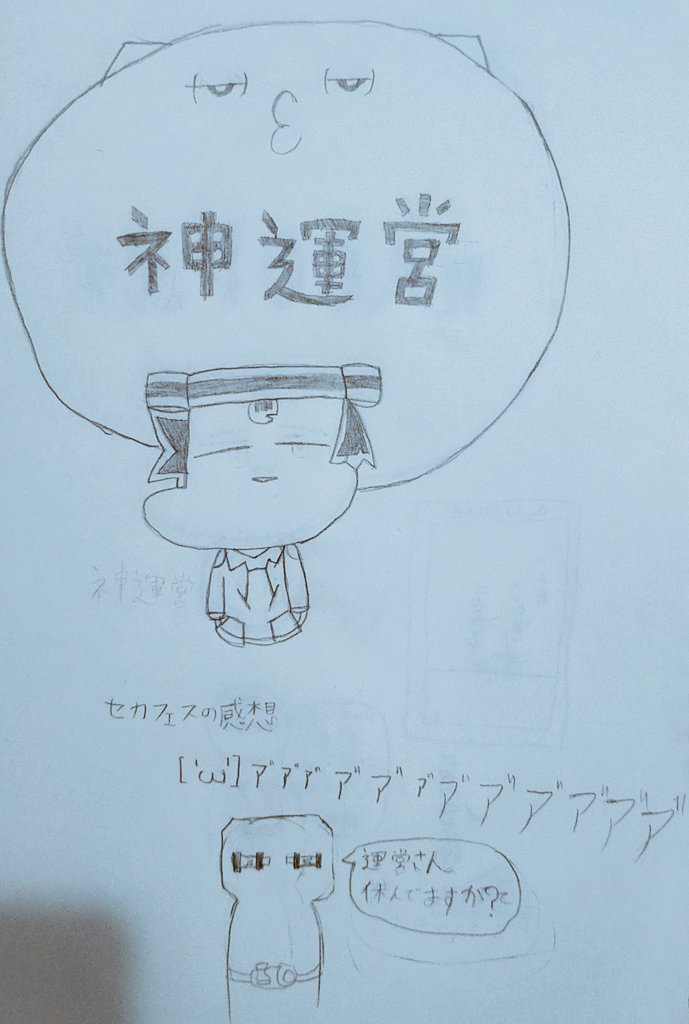 神運営
神運営
セカフェスの感想
['ω']ァ゙ァ゙ァ゙ア゙ア゙ァ゙ア゙ア゙ア゙ア゙ア゙ア゙
運営さん、
休んでますか?